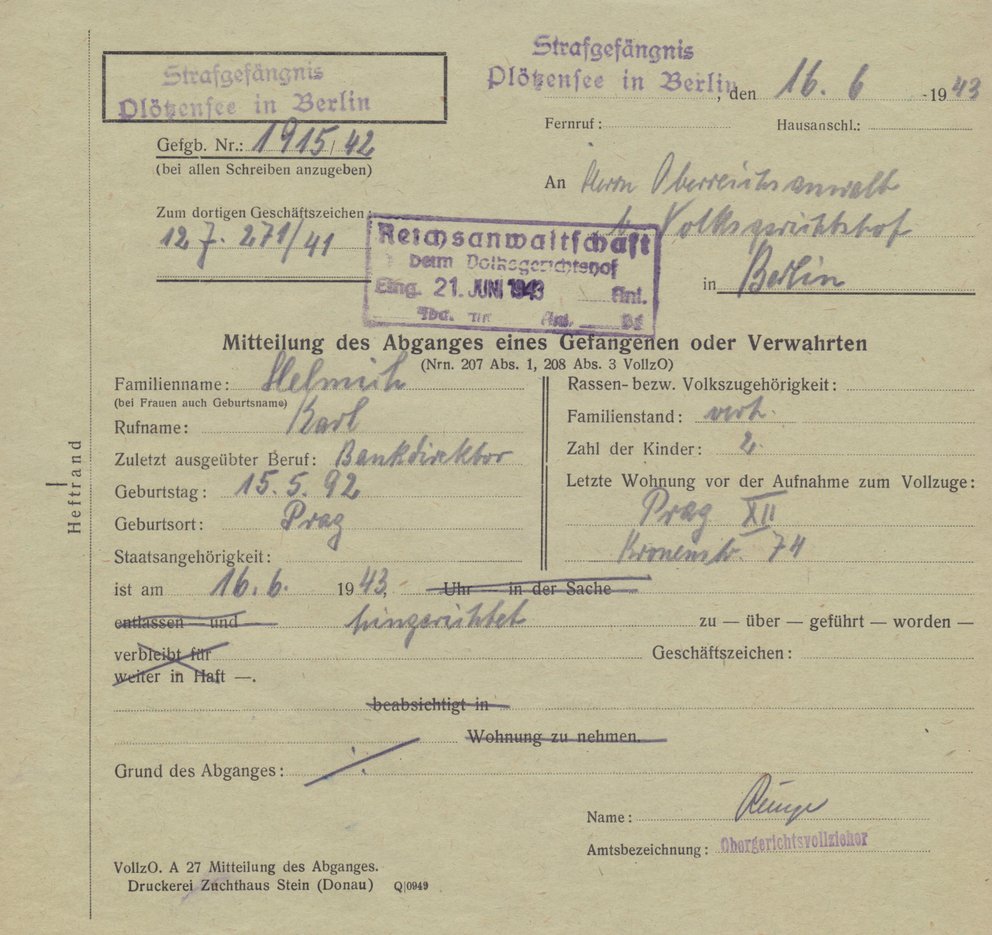 Strafgefängnis
Plötzensee in Berlin
Strafgefängnis
Plötzensee in Berlin, den 16. 6 1943
Gefgb. Nr.: 1915/42
(bei allen Schreiben anzugeben)
Fernruf: Hausanschl.:
An Herrn Oberreichsanwalt
b. Volksgerichtshof
in Berlin
Zum dortigen Geschäftszeichen:
12 J. 271/41
Reichsanwaltschaft
beim Volksgerichtshof
Eing. 21. JUNI 1943 Anl.
Mitteilung des Abganges eines Gefangenen oder Verwahrten
(Nrn. 207 Abs. 1, 208 Abs. 3 VollzO)
Familienname: Helmich
(bei Frauen auch Geburtsname)
Rufname: Karl
Zuletzt ausgeübter Beruf: Bankdirektor
Geburtstag: 15. 5. 92
Geburtsort: Prag
Staatsangehörigkeit:
Rassen- bezw. Volkszugehörigkeit:
Familienstand: verh.
Zahl der Kinder: 2.
Letzte Wohnung vor der Aufnahme zum Vollzuge:
Prag XII
Kronenstr. 74
ist am 16. 6. 1943, Uhr — in der Sache
entlassen — und hingerichtet zu — über — geführt — worden —
verbleibt für Geschäftszeichen:
weiter in Haft —.
beabsichtigt in
Wohnung zu nehmen.
Grund des Abganges:
Name:
Amtsbezeichnung: Obergerichtsvollzieher
VollzO. A 27 Mitteilung des Abganges.
Druckerei Zuchthaus Stein (Donau) Q|0949
Heftrand